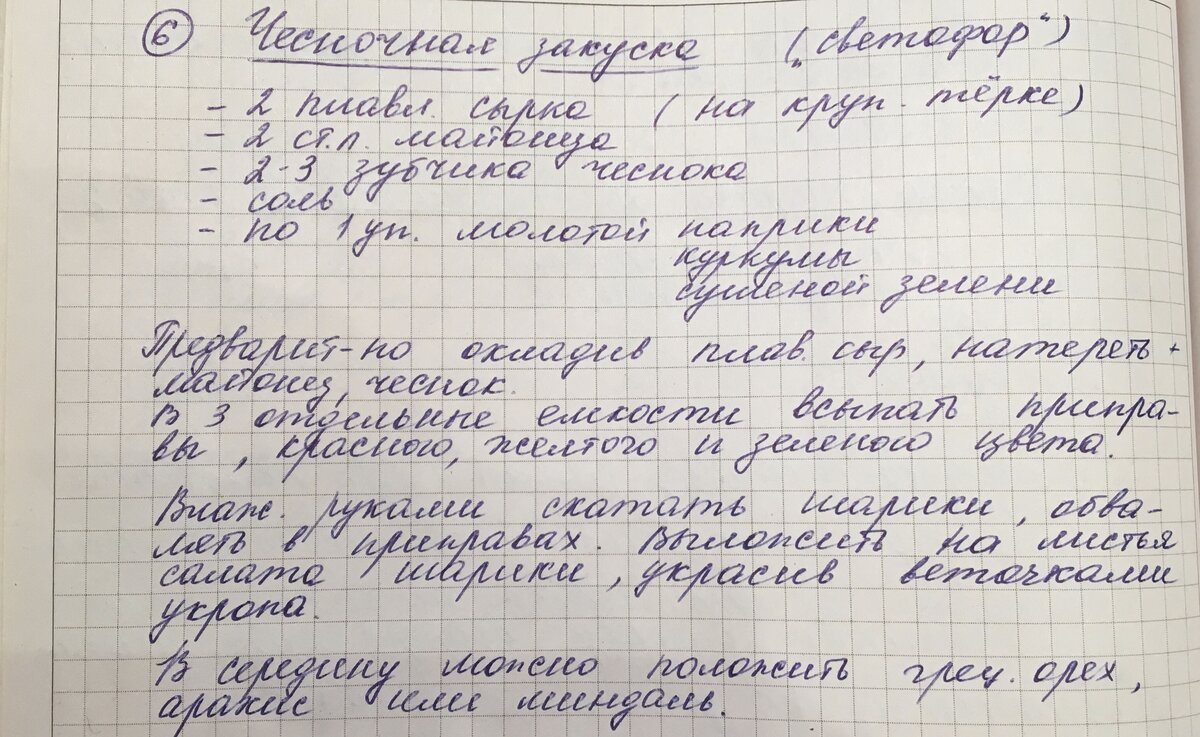 6 Чесночная закуска („светофор“)
- 2 плавл. сырка (на круп. тёрке)
- 2 ст.л. майонеза
- 2-3 зубчика чеснока
- соль
- по 1 уп. молотой паприки
куркумы
сушеной зелени
Предварит-но охладив плав. сыр, натереть +
майонез, чеснок.
В 3 отдельные емкости всыпать припра-
вы, красного, желтого и зеленого цвета.
Влаж. руками скатать шарики, обва-
лять в приправах. Выложить на листья
салата шарики, украсив веточками
укропа.
В середину можно положить грец. орех,
арахис или миндаль.